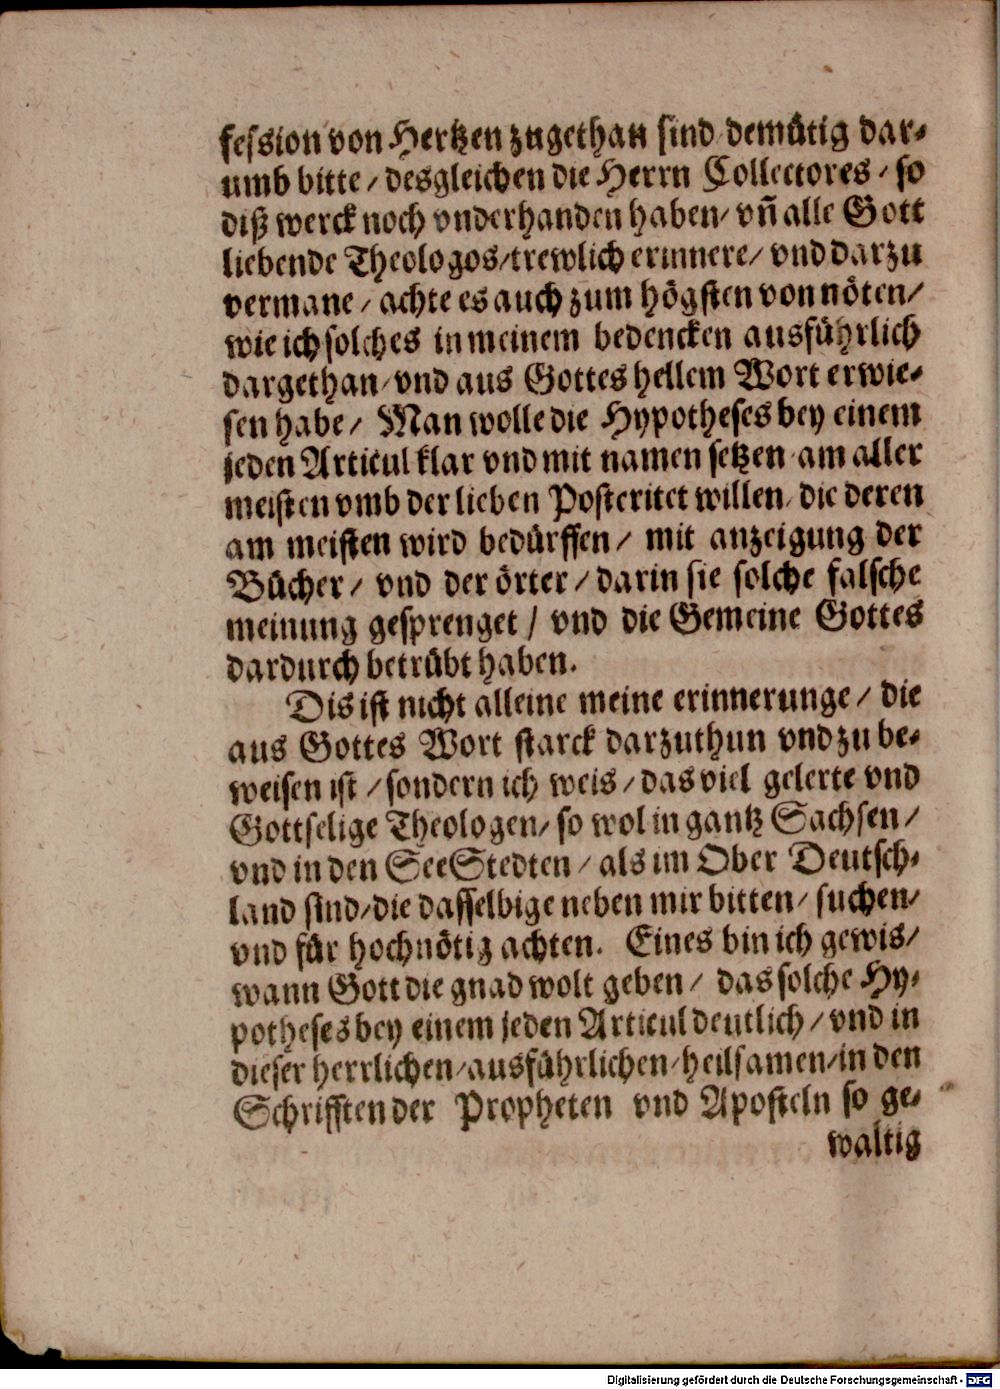 fession von Hertzen zugethan sind demütig dar-
umb bitte / desgleichen die Herrn Collectores / so
diß werck noch vnderhanden haben / vñ alle Gott
liebende Theologos / trewlich erinnere / vnd darzu
vermane / achte es auch zum högsten von nöten /
wie ich solches in meinem bedencken ausführlich
dargethan / vnd aus Gottes hellem Wort erwie-
sen habe / Man wolle die Hypotheses bey einem
jeden Articul klar vnd mit namen setzen am aller
meisten vmb der lieben Posteritet willen / die deren
am meisten wird bedürffen / mit anzeigung der
Bücher / vnd der örter / darin sie solche falsche
meinung gesprenget / vnd die Gemeine Gottes
dardurch betrübt haben.
Dis ist nicht alleine meine erinnerunge / die
aus Gottes Wort starck darzuthun vnd zu be-
weisen ist / sondern ich weis / das viel gelerte vnd
Gottselige Theologen / so wol in gantz Sachsen /
vnd in den SeeStedten / als im Ober Deutsch-
land sind / die dasselbige neben mir bitten / suchen /
vnd für hochnötig achten. Eines bin ich gewis /
wann Gott die gnad wolt geben / das solche Hy-
potheses bey einem jeden Articul deutlich / vnd in
dieser herrlichen / ausführlichen / heilsamen / in den
Schrifften der Propheten vnd Aposteln so ge-
waltig
Digitalisierung gefördert durch die Deutsche Forschungsgemeinschaft - DFG